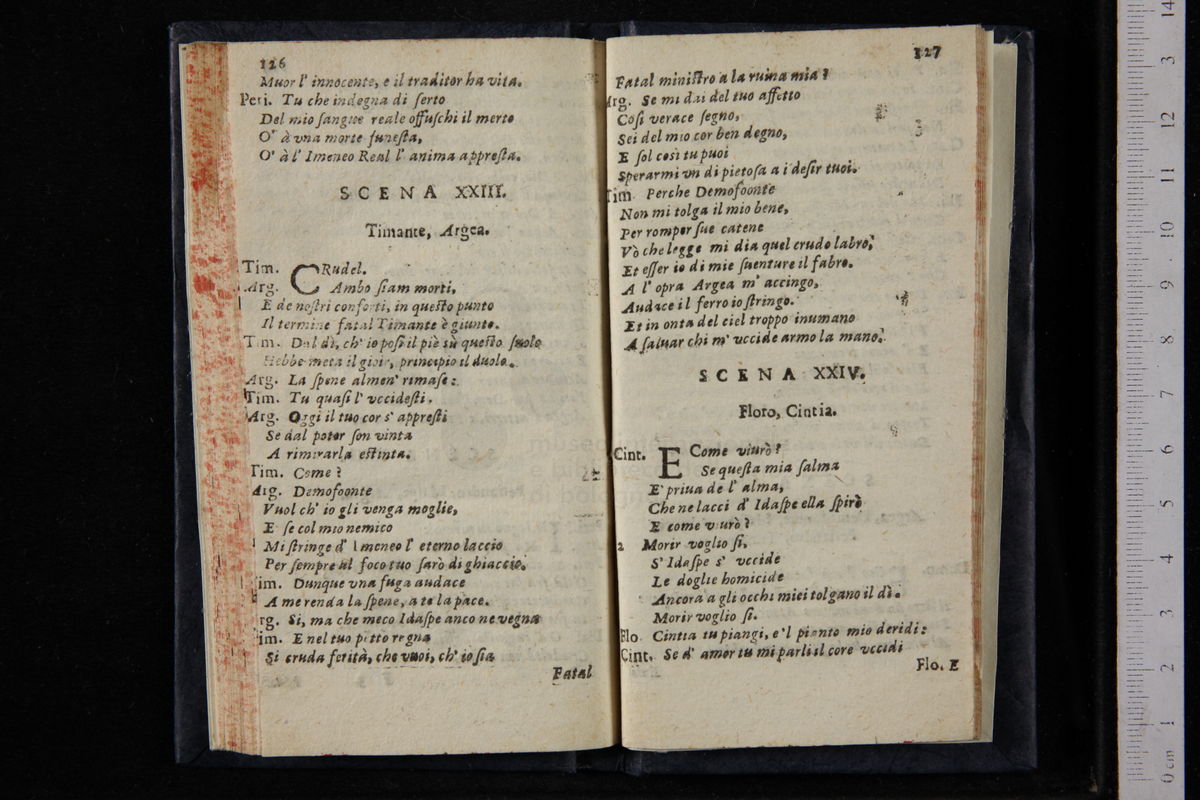 126
Muor l' innocente, e il traditor ha vita.
Peri. Tu che indegna di ſerto
Del mio ſangue reale offuſchi il merto
O' à vna morte funeſta,
O' à l' Imeneo Real l' anima appreſta.
SCENA XXIII.
Timante, Argea.
Tim. CRudel.
Arg. Ambo ſiam morti,
E de noſtri conforti, in queſto punto
Il termine fatal Timante è giunto.
Tim. Dal dì, ch' io poſi il piè sù queſto ſuolo
Hebbe meta il gioir, principio il duolo.
Arg. La ſpene almen' rimaſe:
Tim. Tu quaſi l' vccideſti.
Arg. Oggi il tuo cor s' appreſti
Se dal poter ſon vinta
A rimirarla eſtinta.
Tim. Come?
Arg. Demofoonte
Vuol ch' io gli venga moglie,
E' ſe col mio nemico
Mi ſtringe d' Imeneo l' eterno laccio
Per ſempre al foco tuo ſarò di ghiaccio.
Tim. Dunque vna fuga audace
A me renda la ſpene, a te la pace.
rg. Si, ma che meco Idaſpe anco ne vegna
Tim. E nel tuo petto regna
Si cruda ferità, che vuoi, ch' io ſia
Fatal
127
Fatal miniſtro a la ruina mia?
Arg. Se mi dai del tuo affetto
Coſi verace ſegno,
Sei del mio cor ben degno,
E ſol così tu puoi
Sperarmi vn di pietoſa a i deſir tuoi.
Tim. Perche Demofoonte
Non mi tolga il mio bene,
Per romper ſue catene
Vò che legge mi dia quel crudo labro,
Et eſſer io di mie ſuenture il fabro.
A l' opra Argea m' accingo,
Audace il ferro io ſtringo.
Et in onta del ciel troppo inumano
A ſaluar chi m' vccide armo la mano.
SCENA XXIV.
Floro, Cintia.
Cint. E Come viurò?
Se queſta mia ſalma
E' priua de l' alma,
Che ne lacci d' Idaſpe ella ſpirò
E come viurò?
2 Morir voglio ſi,
S' Idaſpe s' vccide
Le doglie homicide
Ancora a gli occhi miei tolgano il dì.
Morir voglio ſi.
Flo. Cintia tu piangi, e 'l pianto mio deridi:
Cint. Se d' amor tu mi parli il core vccidi
Flo. E